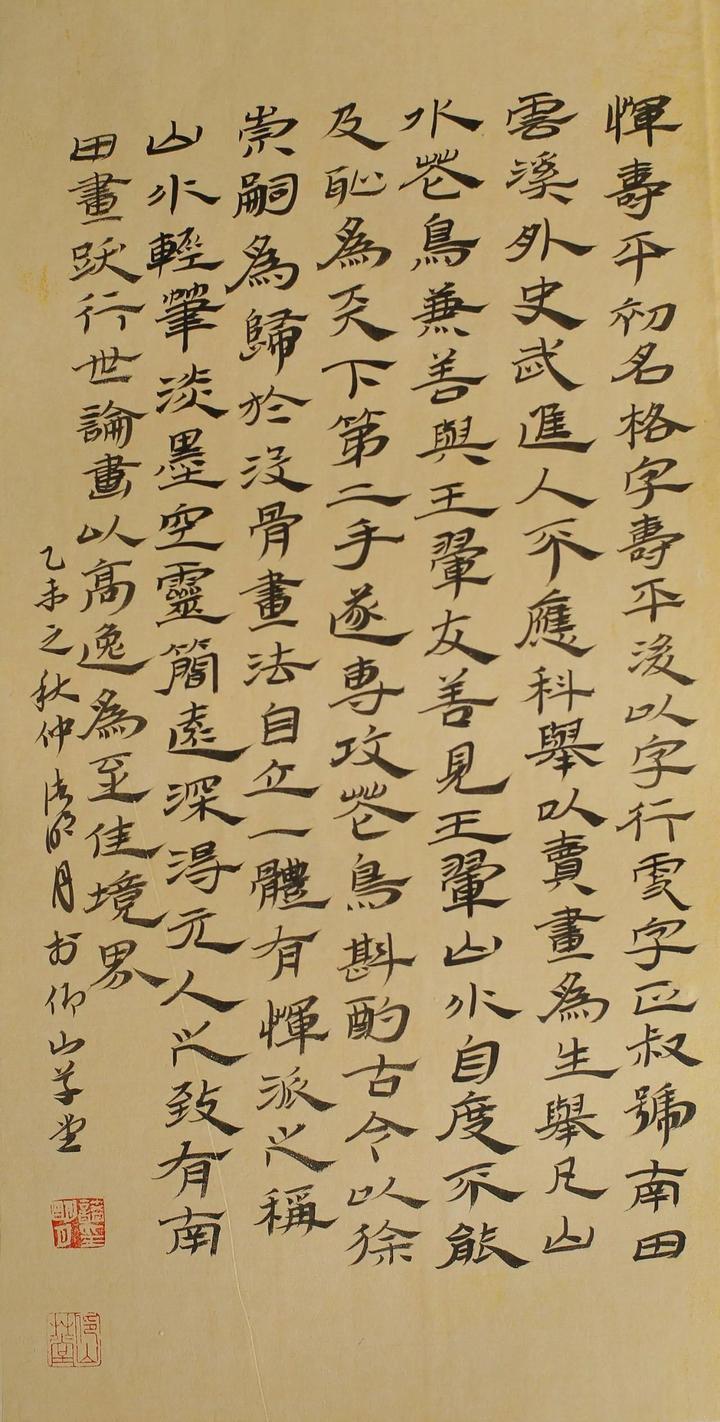 惲壽平初名格字壽平後以字行更字正叔號南田
雲溪外史武進人不應科舉以賣畫為生舉凡山
水花鳥兼善與王翬友善見王翬山水自度不能
及恥為天下第二手遂專攻花鳥斟酌古今以徐
崇嗣為歸於沒骨畫法自立一體有惲派之稱
山水輕筆淡墨空靈簡遠深得元人之致有南
田畫跋行世論畫以高逸為至佳境界
乙未之秋仲明月於仰山草堂
仰山草堂